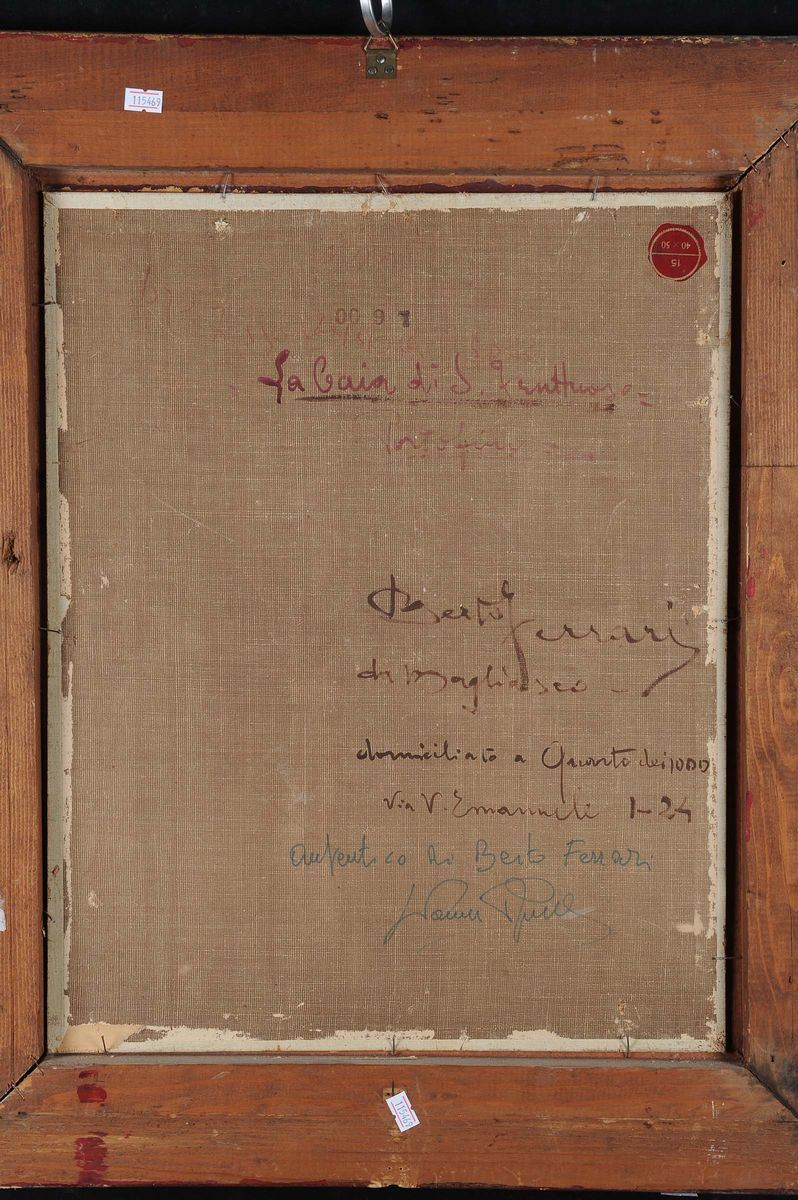 115469
15
40 × 50
La Baia di S. Fruttuoso =
Portofino =
Berto Ferrari
di Bogliasco -
domiciliato a Quarto dei 1000
via V. Emanuele 1-24
autentico di Berto Ferrari
115469